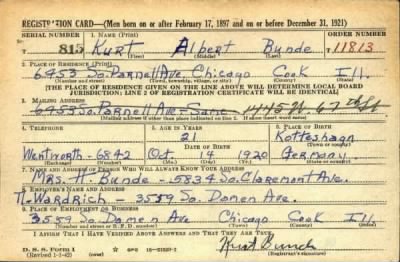 REGISTRATION CARD—(Men born on or after February 17, 1897 and on or before December 31, 1921)
SERIAL NUMBER 1. NAME (Print) ORDER NUMBER
T 815 Kurt Albert Bunde 11813
(First) (Middle) (Last)
2. PLACE OF RESIDENCE (Print)
6453 So. Parnell Ave. Chicago Cook Ill.
(Number and street) (Town, township, village, or city) (County) (State)
[THE PLACE OF RESIDENCE GIVEN ON THE LINE ABOVE WILL DETERMINE LOCAL BOARD
JURISDICTION; LINE 2 OF REGISTRATION CERTIFICATE WILL BE IDENTICAL]
3. MAILING ADDRESS
6453 So. Parnell Ave. Same 445 W. 67th St
[Mailing address if other than place indicated on line 2. If same insert word same]
4. TELEPHONE 5. AGE IN YEARS 6. PLACE OF BIRTH
21
DATE OF BIRTH (Town or county)
Wentworth-6842 Oct 14 1920 Germany.
(Exchange) (Number) (Mo.) (Day) (Yr.) (State or country)
7. NAME AND ADDRESS OF PERSON WHO WILL ALWAYS KNOW YOUR ADDRESS
Mrs. H. Bunde - 5834 So. Claremont Ave.
8. EMPLOYER'S NAME AND ADDRESS
Wardrich - 3559 So. Damen Ave.
9. PLACE OF EMPLOYMENT OR BUSINESS
3559 So. Damen Ave Chicago Cook Ill
(Number and street or R. F. D. number) (Town) (County) (State)
I AFFIRM THAT I HAVE VERIFIED ABOVE ANSWERS AND THAT THEY ARE TRUE.
D. S. S. Form 1
(Revised 1-1-42) (over) Kurt Bunde
(Registrant's signature)